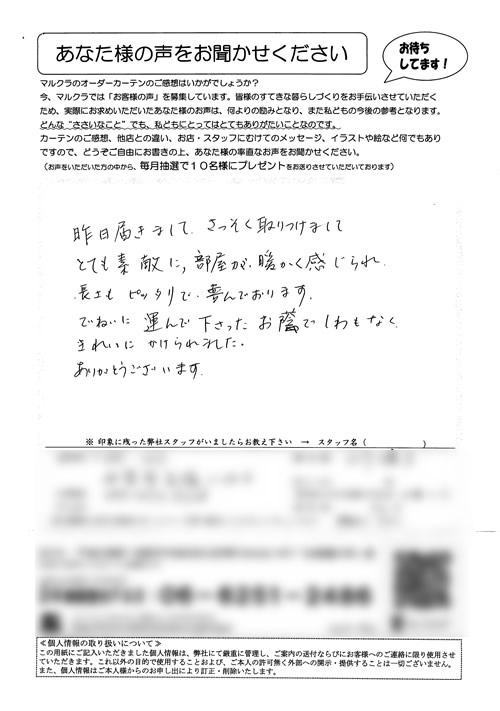 あなた様の声をお聞かせください
お待ち
してます！
マルクラのオーダーカーテンのご感想はいかがでしょうか？
今、マルクラでは「お客様の声」を募集しています。皆様のすてきな暮らしづくりをお手伝いさせていただく
ため、実際にお求めいただいたあなた様の声は、何よりの励みとなり、また私どもの今後の参考となります。
どんな“ささいなこと”でも、私どもにとってはとてもありがたいことなのです。
カーテンのご感想、他店との違い、お店・スタッフにむけてのメッセージ、イラストや絵など何でもあり
ですので、どうぞご自由にお書きの上、あなた様の率直なお声をお聞かせください。
（お声をいただいた方の中から、毎月抽選で１０名様にプレゼントをお送りさせていただいております）
昨日届きまして、さっそく取りつけまして
とても素敵に、部屋が、暖かく感じられ、
長さも ピッタリで、喜んでおります。
でねいに 運んで 下さった お蔭で しわもなく
きれいに かけられました。
ありがとうございます。
※ 印象に残った弊社スタッフがいましたらお教え下さい → スタッフ名（ ）
06-6251-2486
≪個人情報の取り扱いについて≫
この用紙にご記入いただきました個人情報は、弊社にて厳重に管理し、ご案内の送付ならびにお客様へのご連絡に限り使用させ
ていただきます。これ以外の目的で使用することおよび、ご本人の許可無く外部への開示・提供することは一切ございません。
また、個人情報はご本人様からのお申し出により訂正・削除いたします。